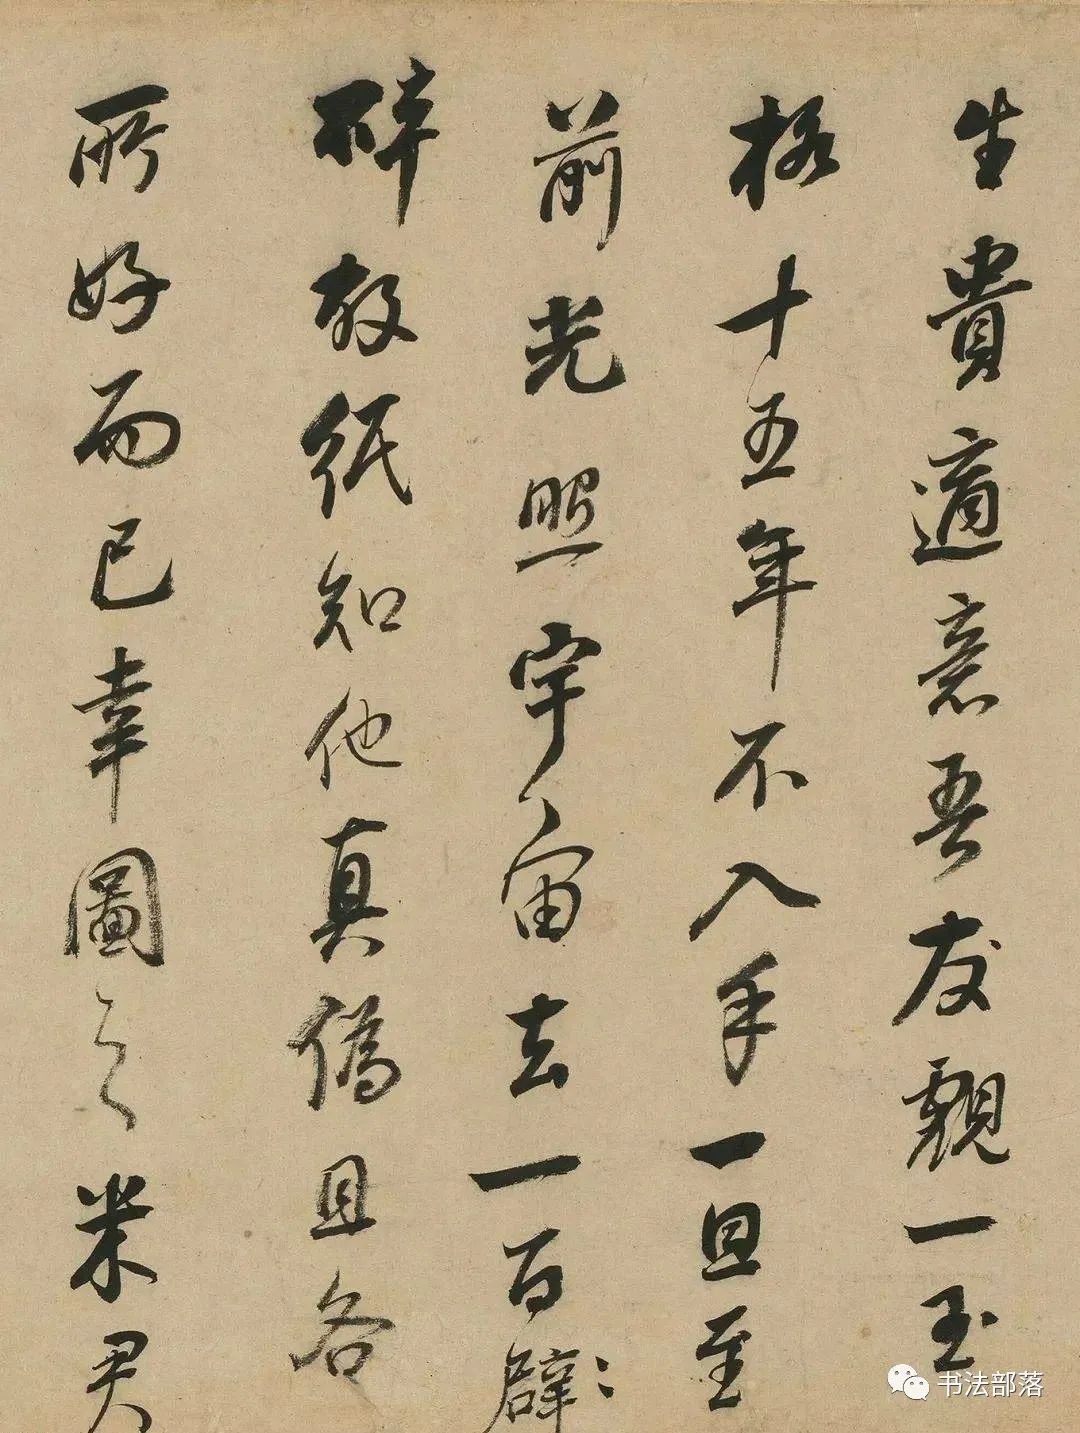 生貴適意吾友覷一玉
格十五年不入手一旦至
前光照宇宙去一百
碎故紙知他真偽且各
所好而已幸圖之米君
书法部落